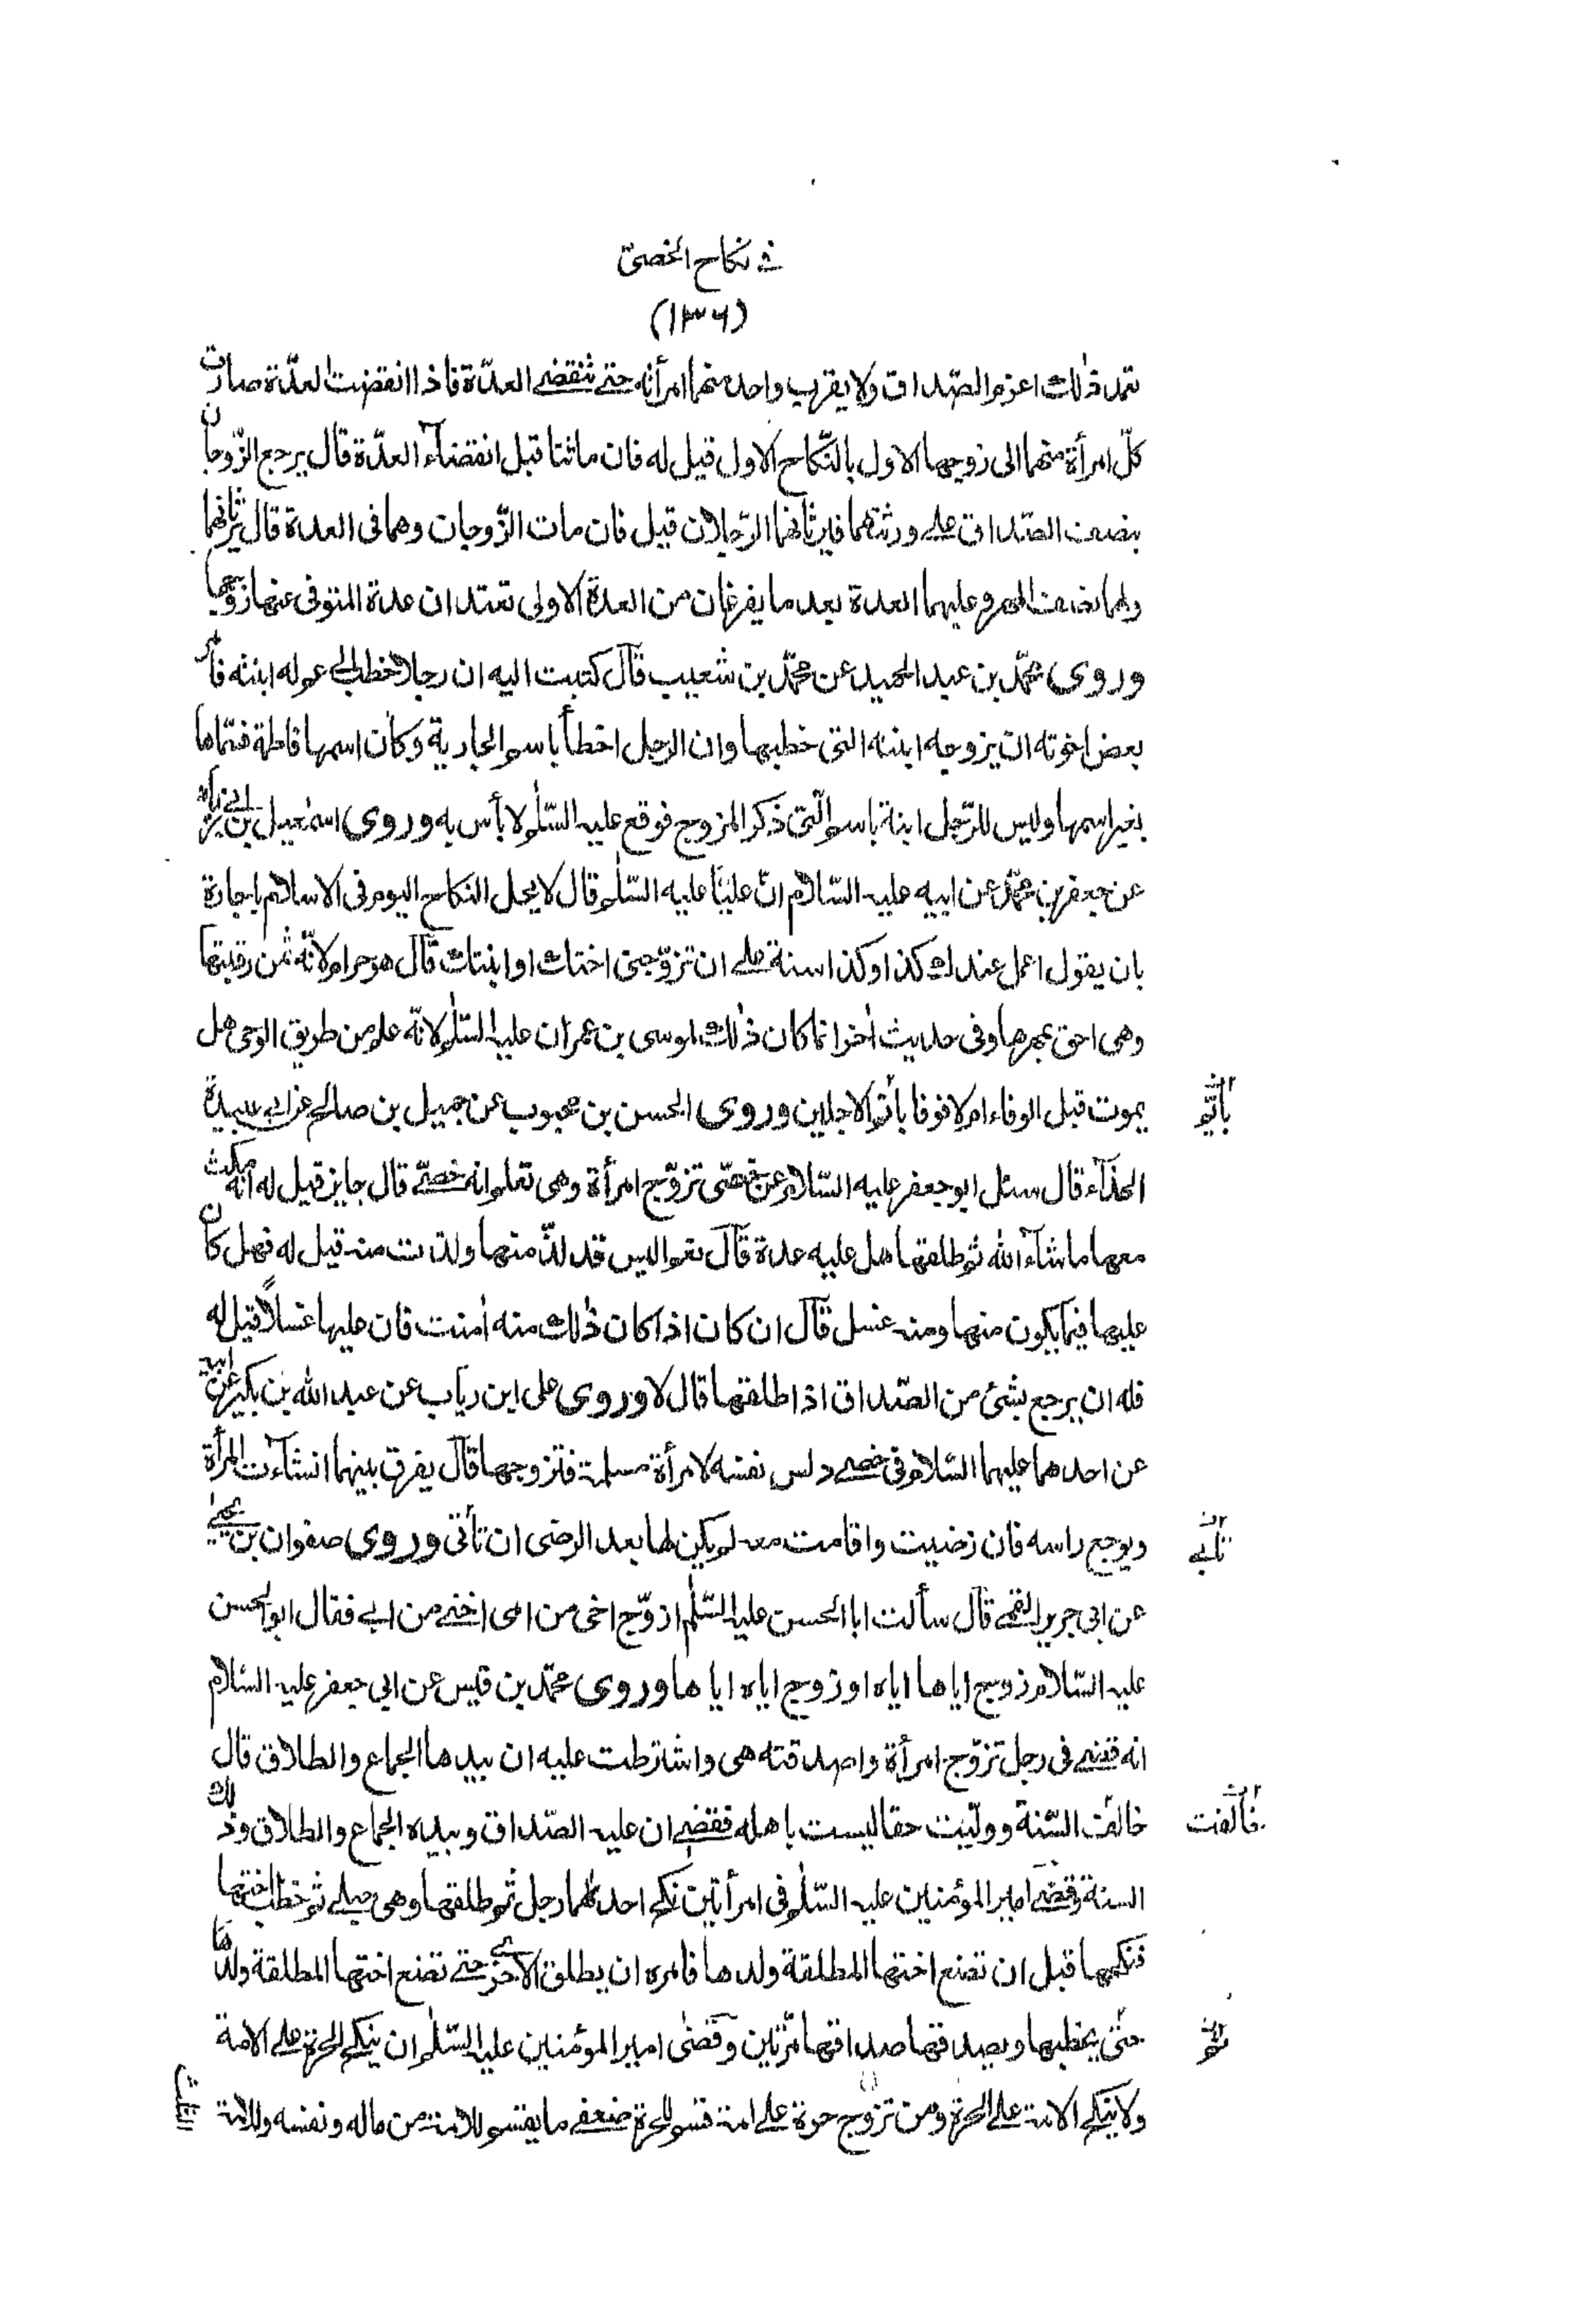 في نكاح الخصيّ
(١٣٦)
تعمد ذلك اغرم الصّداق ولا يقرب واحد منهما امرأته حتى تنقضي العدّة فاذا انقضت العدّة صارت
كلّ امرأة منهما الى زوجها الاول بالنّكاح الاول قيل له فان ماتتا قبل انقضآء العدّة قال يرجع الزّوجان
بنصف الصّداق على ورثتهما فيرثانهما الرّجلان قيل فان مات الزّوجان وهما فى العدة قال ترثانهما
ولهما نصف المهر وعليهما العدة بعد ما يفرغان من العدة الاولى تعتدان عدة المتوفى عنها زوجها
وروى محمّد بن عبد الحميد عن محمّد بن شعيب قال كتبت اليه ان رجلا خطب الى عم له ابنته فأمر
بعض اخوته ان يزوجه ابنته التى خطبها وان الرجل اخطأ باسم الجارية وكان اسمها فاطمة فسمّاها
بغير اسمها وليس للرّجل ابنة باسم الّتى ذكر المزوج فوقع عليه السّلم لا بأس به وروى اسمعيل بن ابي زياد
عن جعفر بن محمّد عن ابيه عليه السّلام انّ عليّا عليه السّلم قال لا يحل النكاح اليوم فى الاسلام باجارة
بان يقول اعمل عندك كذا وكذا سنة على ان تزوّجنى اختك او ابنتك قال هو حرام لانّه ثمن رقبتها
وهى احق بمهرها وفى حديث اخر انما كان ذلك لموسى بن عمران عليه السّلم لانّه علم من طريق الوحى هل
يموت قبل الوفاء ام لا فوفا بأتم الاجلين وروى الحسن بن محبوب عن جميل بن صالح عن ابي عبيدة
بأتم
الحذآء قال سئل ابو جعفر عليه السّلام عن خصّى تزوّج امرأة وهى تعلم انه خصّي قال جايز قيل له انه مكث
معها ما شآء الله ثم طلقها هل عليه عدة قال نعم اليس قد لذّ منها ولذت منه قيل له فهل كان
عليها فيما يكون منها ومنه غسل قال ان كان اذا كان ذلك منه امنت فان عليها غسلاً قيل له
فله ان يرجع بشئ من الصّداق اذا طلقها قال لا وروى على ابن رياب عن عبد الله بن بكير عن ابيه
عن احدهما عليهما السّلام فى خصي دلس نفسه لامرأة مسلمة فتزوجها قال يفرق بينهما ان شآءت المرأة
ويوجع راسه فان رضيت واقامت معه لم يكن لها بعد الرضى ان تأتى وروى صفوان بن يحيى
تابى
عن ابى جرير القمي قال سألت ابا الحسن عليه السّلم ازوّج اخى من امى اختي من ابي فقال ابو الحسن
عليه السّلام زوج اياها اياه او زوج اياه اياها وروى محمّد بن قيس عن ابي جعفر عليه السّلام
انه قضى فى رجل تزوّج امرأة واصدقته هى واشترطت عليه ان بيدها الجماع والطلاق قال
خالفت السّنة وولّيت حقا ليست باهله فقضى ان عليه الصّداق وبيده الجماع والطلاق وذلك
السنة وقضى امير المؤمنين عليه السّلم فى امرأتين نكح احدهما رجل ثم طلقها وهى حبلى ثم خطب اختها
فنكحها قبل ان تضع اختها المطلقة ولدها فامره ان يطلق الاخرى حتى تضع اختها المطلقة ولدها
ثم
حتى يخطبها ويصدقها صداقها مرّتين وقضى امير المؤمنين عليه السّلم ان ينكح الحرة على الامة
ولا ينكح الامة على الحرة ومن تزوج حرة على امة قسم للحرة ضعفي ما يقسم للامة من ماله ونفسه وللامة
الثلث